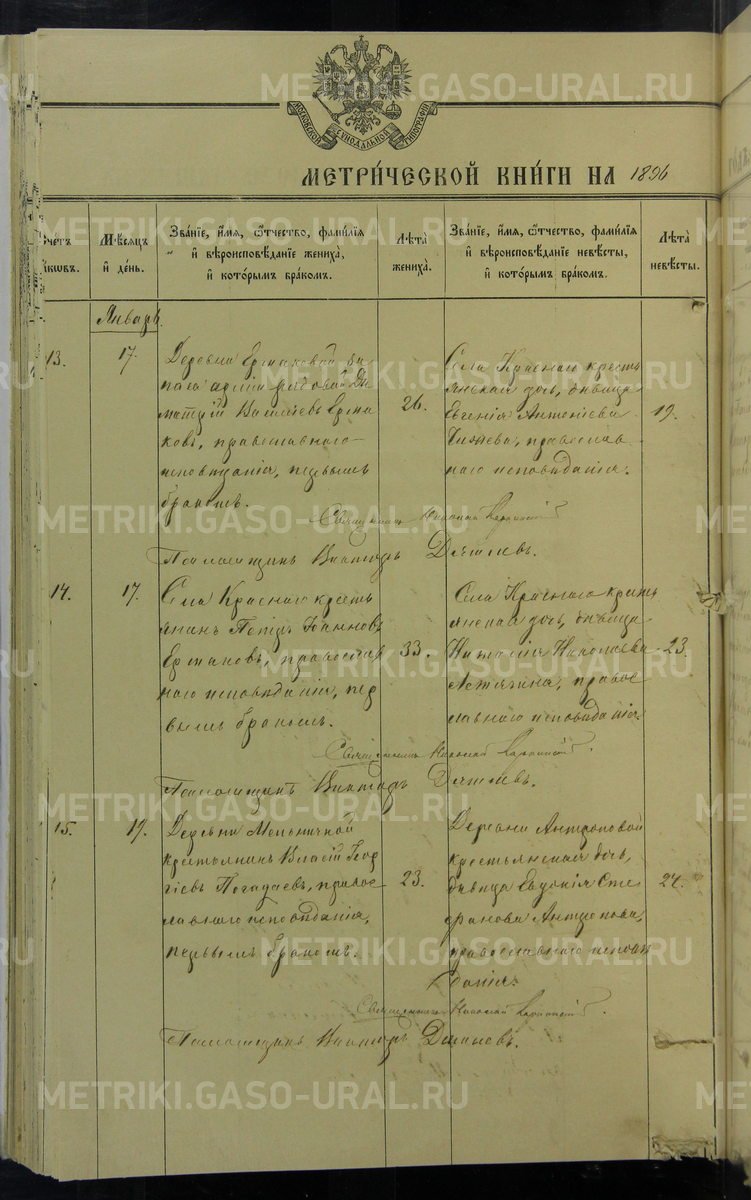 МОСКОВСКОЙ СѴНОДАЛЬНОЙ ТИПОГРАФІИ
МЕТРИ́ЧЕСКОЙ КНИ́ГИ НА 1896
Счетъ браковъ.
Мѣсяцъ и день.
Зва́нїе, и́мѧ, ѻ҆́тчество, фами́лїѧ
и҆ вѣроисповѣ́данїе жениха̀,
и҆ кото́рымъ бра́комъ.
Лѣта̀ жениха̀.
Зва́нїе, и́мѧ, ѻ҆́тчество, фами́лїѧ
и҆ вѣроисповѣ́данїе невѣ́сты,
и҆ кото́рымъ бра́комъ.
Лѣта̀ невѣ́сты.
Январь.
13.
17.
Деревни Ермаковой за-
паса арміи рядовой Ди-
митрій Василіевъ Ерма-
ковъ, православнаго
исповѣданія, первымъ
бракомъ.
26.
Села Краснаго кресть-
янская дочь, дѣвица
Евгенія Антоніева
православ-
наго исповѣданія.
19.
Священникъ Николай
Псаломщикъ Викторъ
14.
17.
Села Краснаго кресть-
янинъ Петръ Іоанновъ
Ермаковъ, православ-
наго исповѣданія, пер-
вымъ бракомъ.
33.
Села Краснаго кресть-
янская дочь, дѣвица
Наталія Николаева
право-
славнаго исповѣданія.
23.
Священникъ Николай
Псаломщикъ Викторъ
15.
19.
Деревни Мельничной
крестьянинъ Власій Геор-
гіевъ Погадаевъ, право-
славнаго исповѣданія,
первымъ бракомъ.
23.
Деревни Антроповой
крестьянская дочь,
дѣвица Евдокія Сте-
фанова Антропова,
православнаго исповѣ-
данія.
24.
Священникъ Николай
Псаломщикъ Викторъ
METRIKI.GASO-URAL.RU